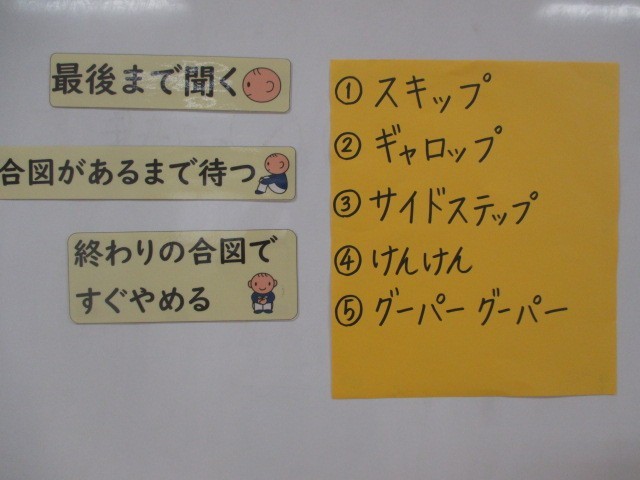 最後まで聞く
合図があるまで待つ
終わりの合図で
すぐやめる
① スキップ
② ギャロップ
③ サイドステップ
④ けんけん
⑤ グーパー グーパー